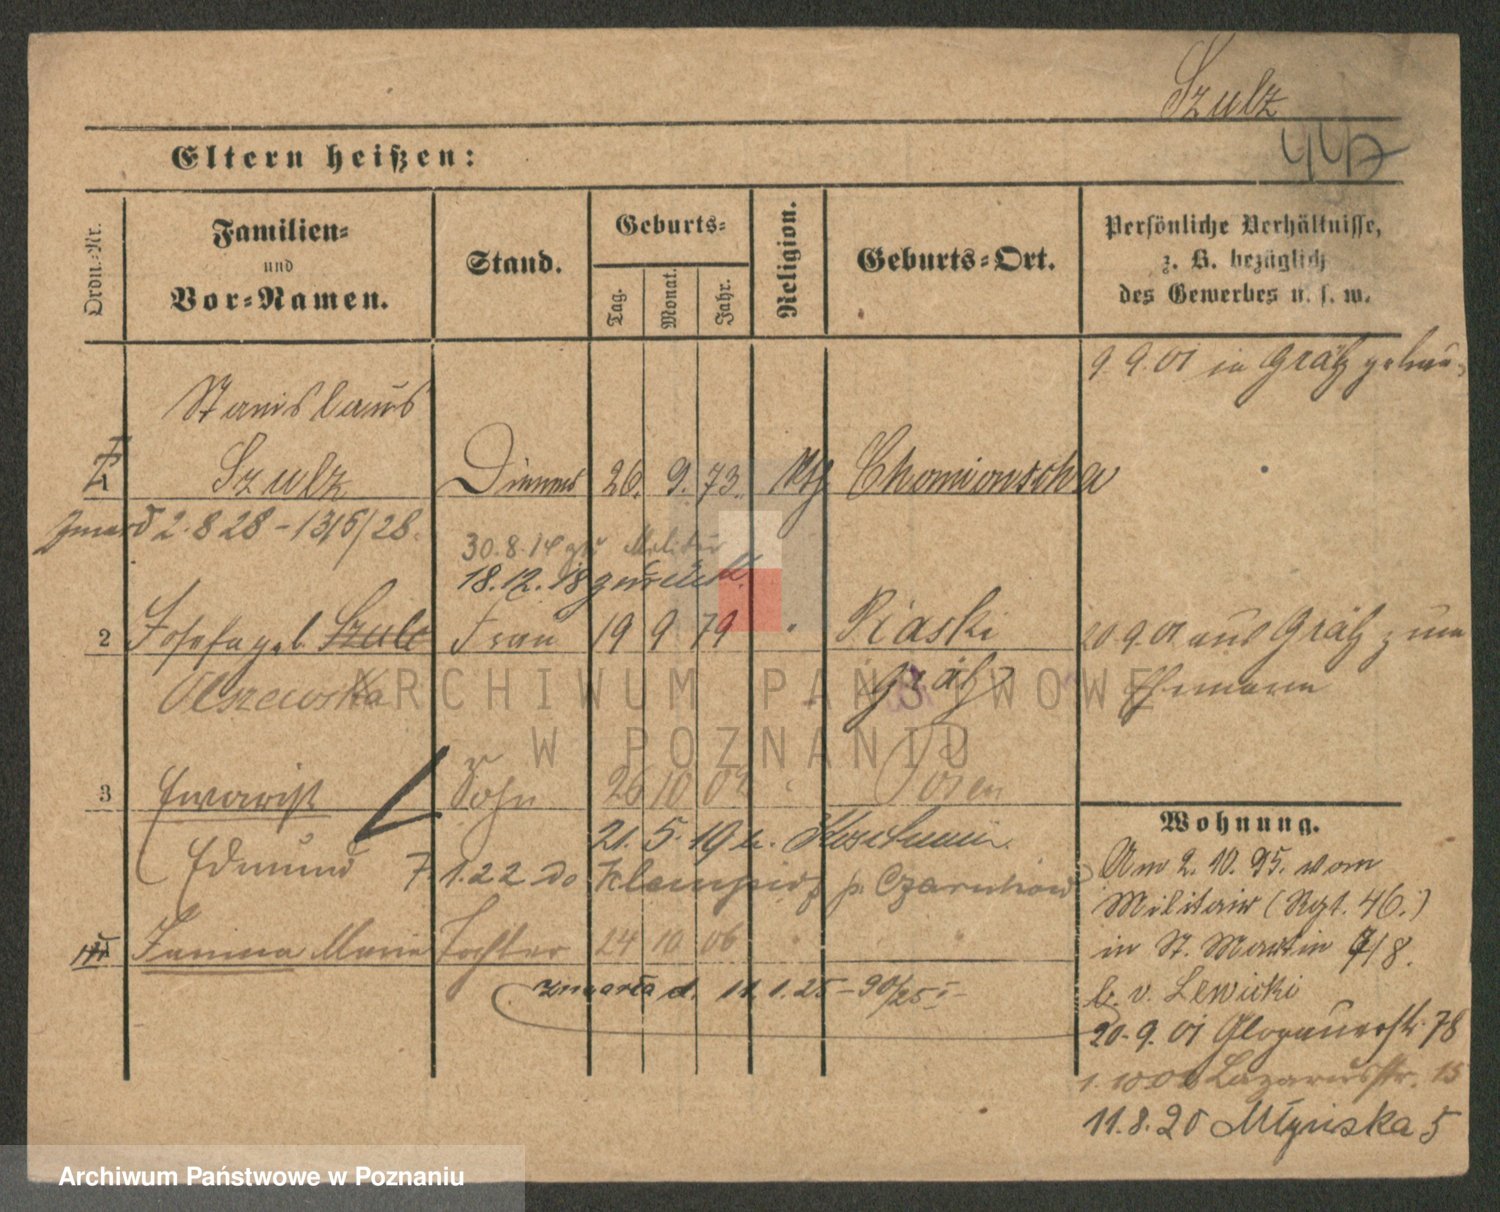 Szulz
Eltern heißen:
Ordn.-Nr.
Familien-
und
Vor-Namen.
Stand.
Geburts-
Tag.
Monat.
Jahr.
Religion.
Geburts-Ort.
Persönliche Verhältnisse,
z. B. bezüglich
des Gewerbes u. s. w.
9. 9. 01 in Grätz
Stanislaus
1 Szulz Diener 26. 9. 73. kth Chomionscha
zmarł 2. 8 28 - 1315/28.
30. 8. 14 Militär
18. 12. 18 zurück.
2 Josefa geb. Szulc Frau 19 9 79 Piaski 20 9. 01 aus Grätz zum
Olszewska Grätz Ehemann
3 Ewarist Sohn 26 10 02 Posen
21. 5. 19 n. Koschmin
Edmund 7 1. 22 do p. Czarnków
Janina Maria Tochter 24 10 06
zmarła d. 11. 1. 25 - 90/25 I
Wohnung.
Am 2. 10. 95. vom
Militair (Rgt. 46.)
in St. Martin 7/8.
b. v. Lewicki
20. 9. 01 Glogauerstr. 78
Lazarusstr. 15
11. 8. 20 Młyńska 5
ARCHIWUM PAŃSTWOWE
W POZNANIU
Archiwum Państwowe w Poznaniu